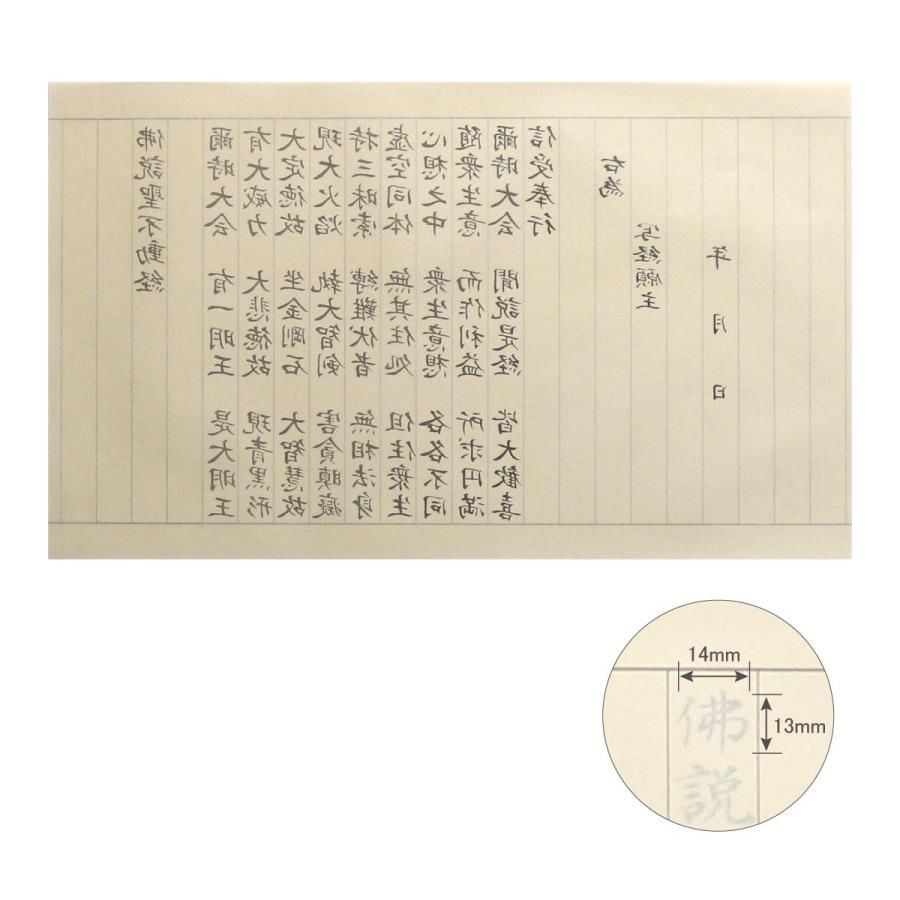 佛説聖不動経
爾時大会 有一明王 是大明王
有大威力 大悲徳故 現青黒形
大定徳故 坐金剛石 大智慧故
現大火焔 執大智剣 害貪瞋癡
持三昧索 縛難伏者 無相法身
虚空同体 無其住処 但住衆生
心想之中 衆生意想 各各不同
随衆生意 而作利益 所求円満
爾時大会 聞説是経 皆大歓喜
信受奉行
右為
写経願主
年 月 日
14mm
13mm
佛説